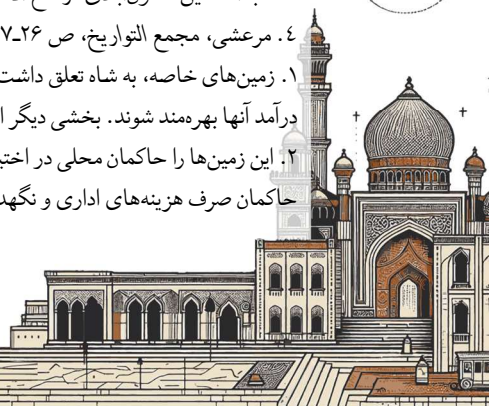 ٤. مرعشی، مجمع التواریخ، ص ۲۶ـ۷
۱. زمین‌های خاصه، به شاه تعلق داشت
درآمد آنها بهره‌مند شوند. بخشی دیگر
۲. این زمین‌ها را حاکمان محلی در
حاکمان صرف هزینه‌های اداری و